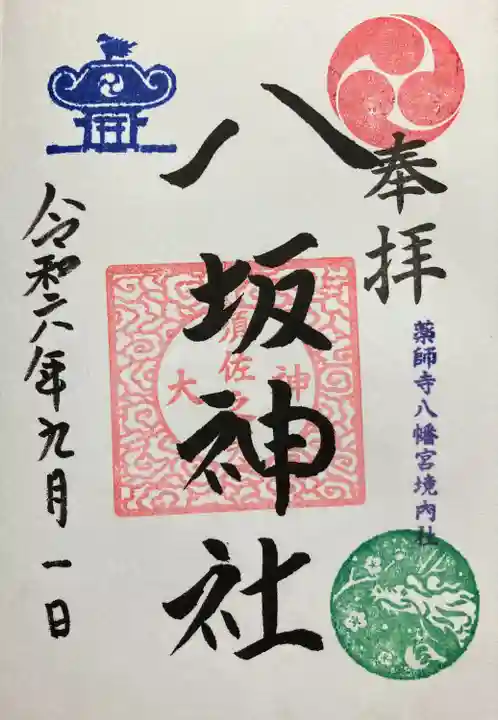 奉拝
薬師寺八幡宮境内社
八坂神社
須佐之
大
神
令和六年九月一日